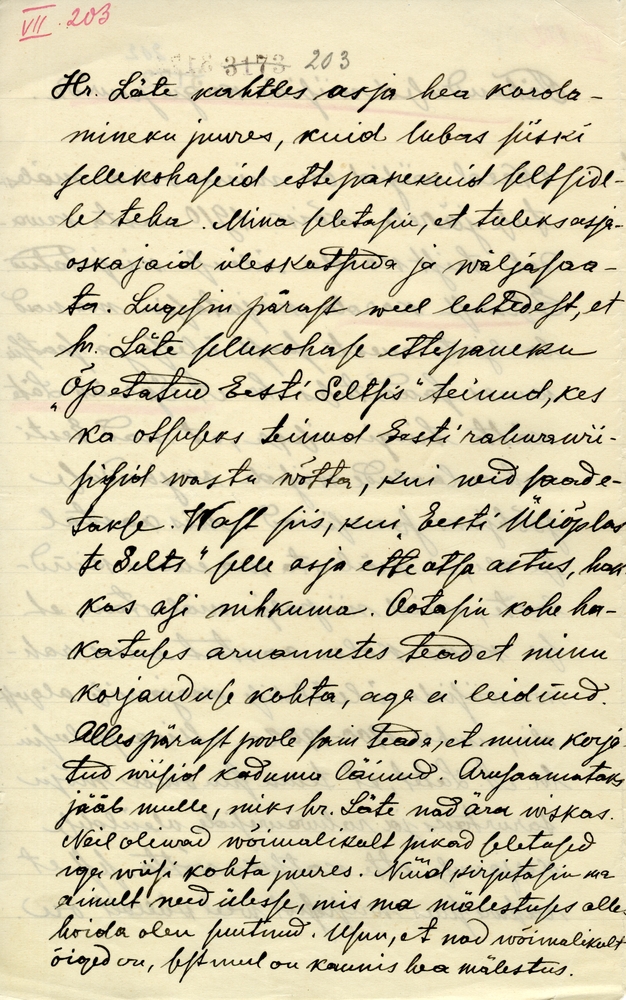 VII. 203
3173 203
Hr. Läte kahtles asja hea korda-
mineku juures, kuid lubas siiski
sellekohaseid ettepanekuid seltside-
le teha. Mina seletasin, et tuleks asja-
oskajaid üleskutsuda ja wäljasaa-
ta. Lugesin pärast weel lehtedest, et
hr. Läte sellekohase ettepaneku
"Õpetatud Eesti Seltsis" teinud, kes
ka otsuseks teinud Eesti rahwawii-
sisid wastu wõtta, kui neid saade-
takse. Wast siis, kui "Eesti Üliõplas
te Selts" selle asja etteotsa astus, hak
kas asi nihkuma. Ootasin kohe ha-
katuses aruannetes teadet minu
korjanduse kohta, aga ei leidnud.
Alles pärast poole sain teada, et minu korja
tud wiisid kaduma läinud. Arusaamataks
jääb mulle, miks hr. Läte nad ära wiskas.
Neil oliwad wõimalikult pikad seletused
iga wiisi kohta juures. Nüüd kirjutasin ma
ainult need ülesse, mis ma mälestuses alles
hoida olen suutnud. Usun, et nad wõimalikult
õiged on, sest mul on kaunis hea mälestus.